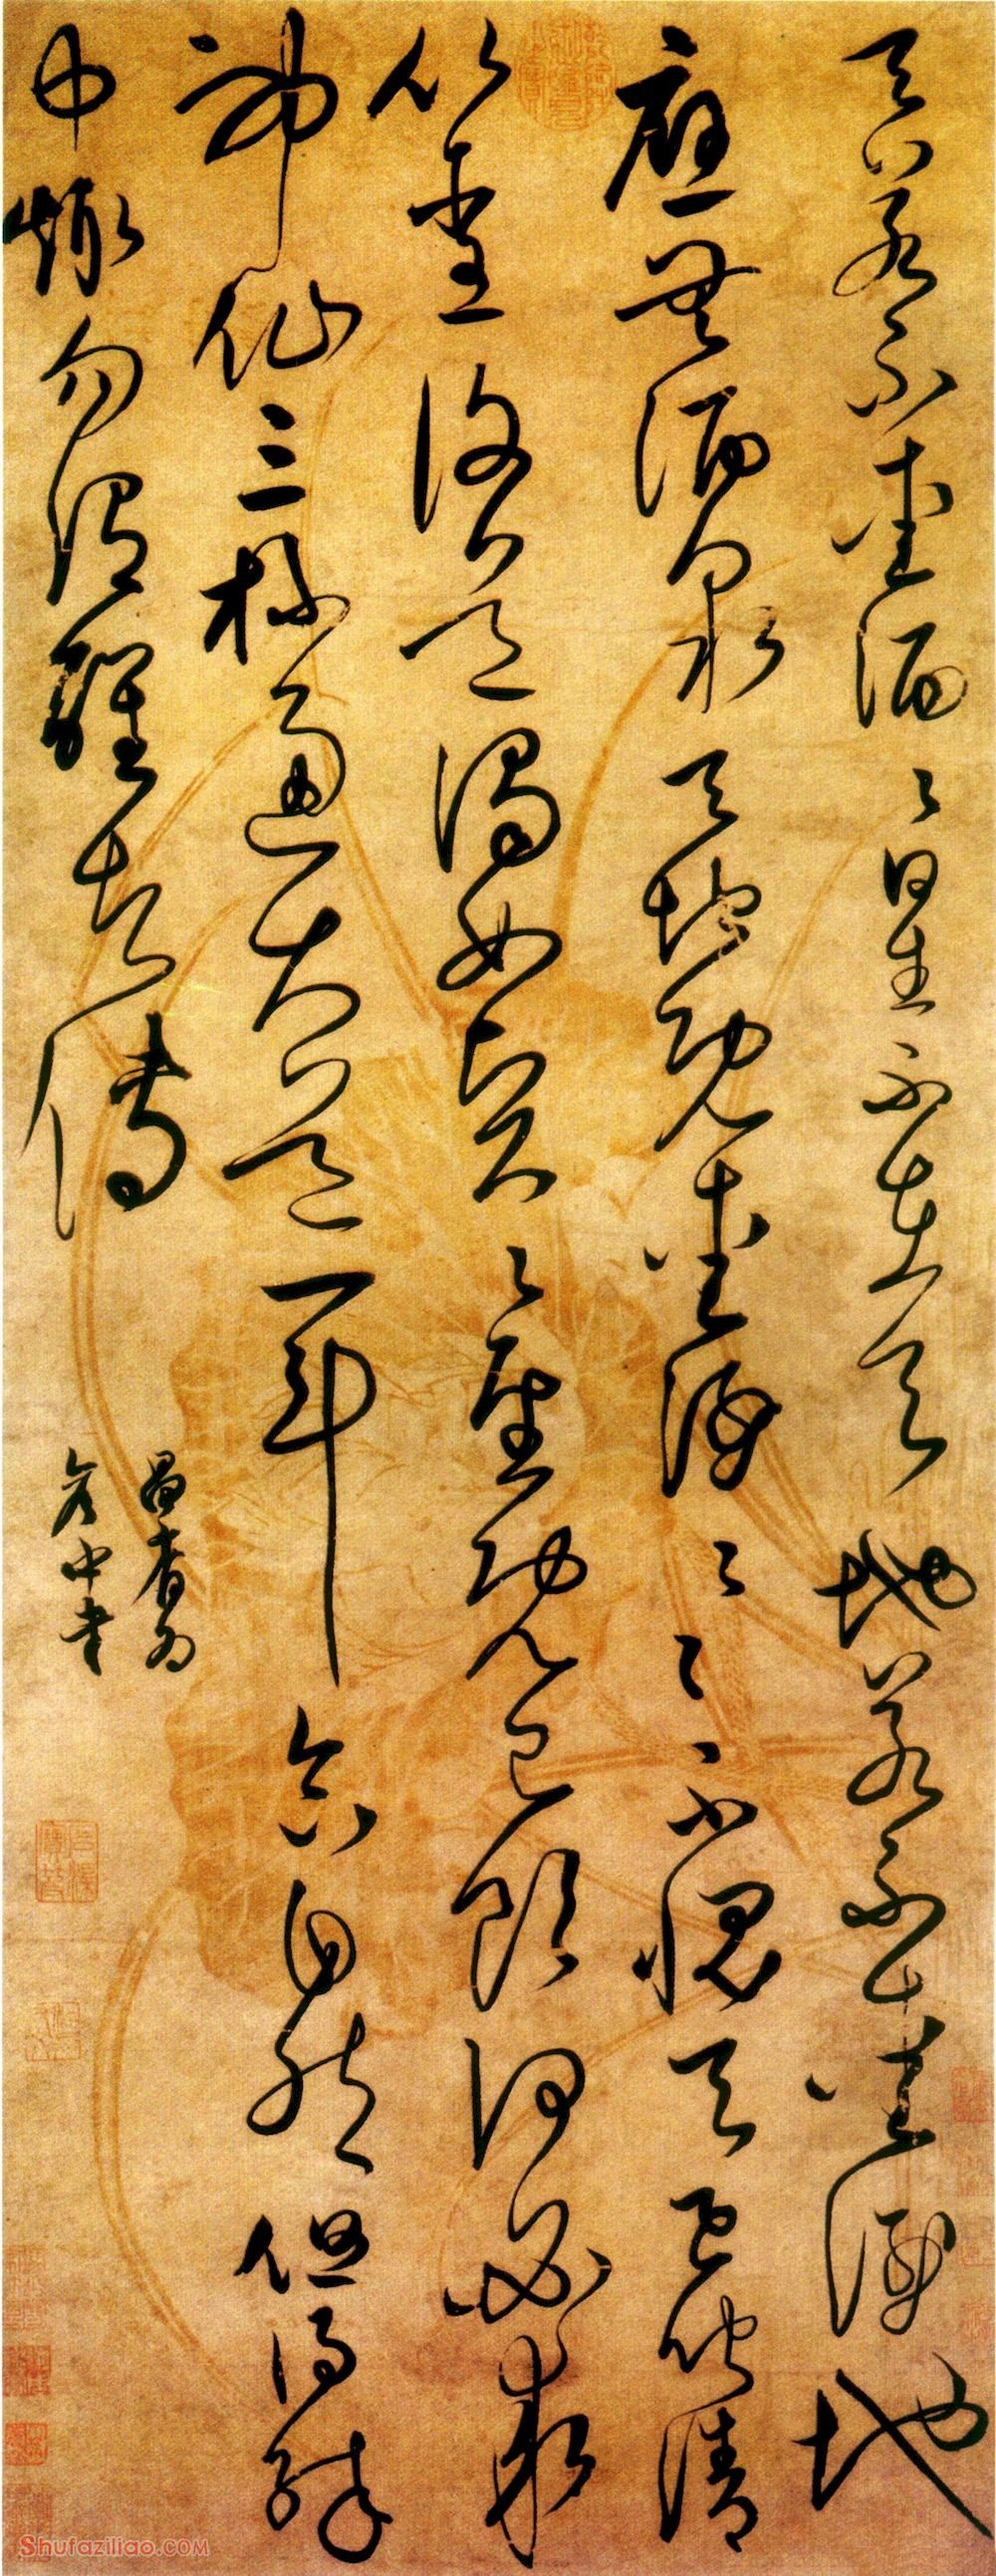 天若不愛酒〻星不在天地若不愛酒地
應無酒泉天地既愛酒〻〻不愧天已聞清
比聖復道濁如賢〻聖既已飲何必求
神仙三杯通大道一斗合自然但得醉
中趣勿謂醒者傳
昌裔為
彥中書
Shufaziliao.COM